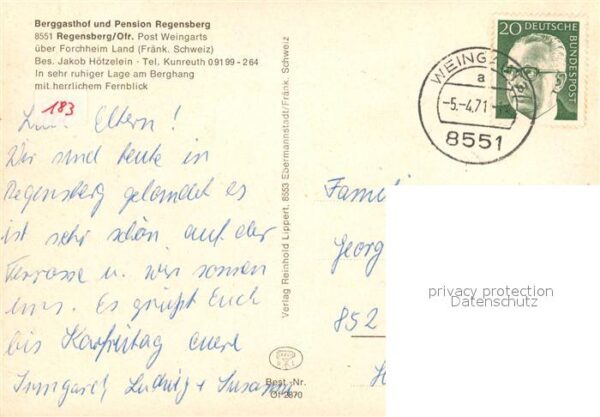 Berggasthof und Pension Regensberg
8551 Regensberg/Ofr. Post Weingarts
über Forchheim Land (Fränk. Schweiz)
Bes. Jakob Hötzelein · Tel. Kunreuth 09199-264
In sehr ruhiger Lage am Berghang
mit herrlichem Fernblick
183
Eltern!
Wir sind heute in
Regensberg gelandet es
ist sehr schön auf der
Terrasse u. wir sonnen
uns. Es grüßt Euch
bis Karfreitag eure
Irmgard, Ludwig + Susanne
Verlag Reinhold Lippert, 8553 Ebermannstadt/Fränk. Schweiz
Best.-Nr.
Of 2870
20 DEUTSCHE
BUNDESPOST
WEINGARTS
a
-5.-4.71
8551
Famili
Georg
852
privacy protection
Datenschutz